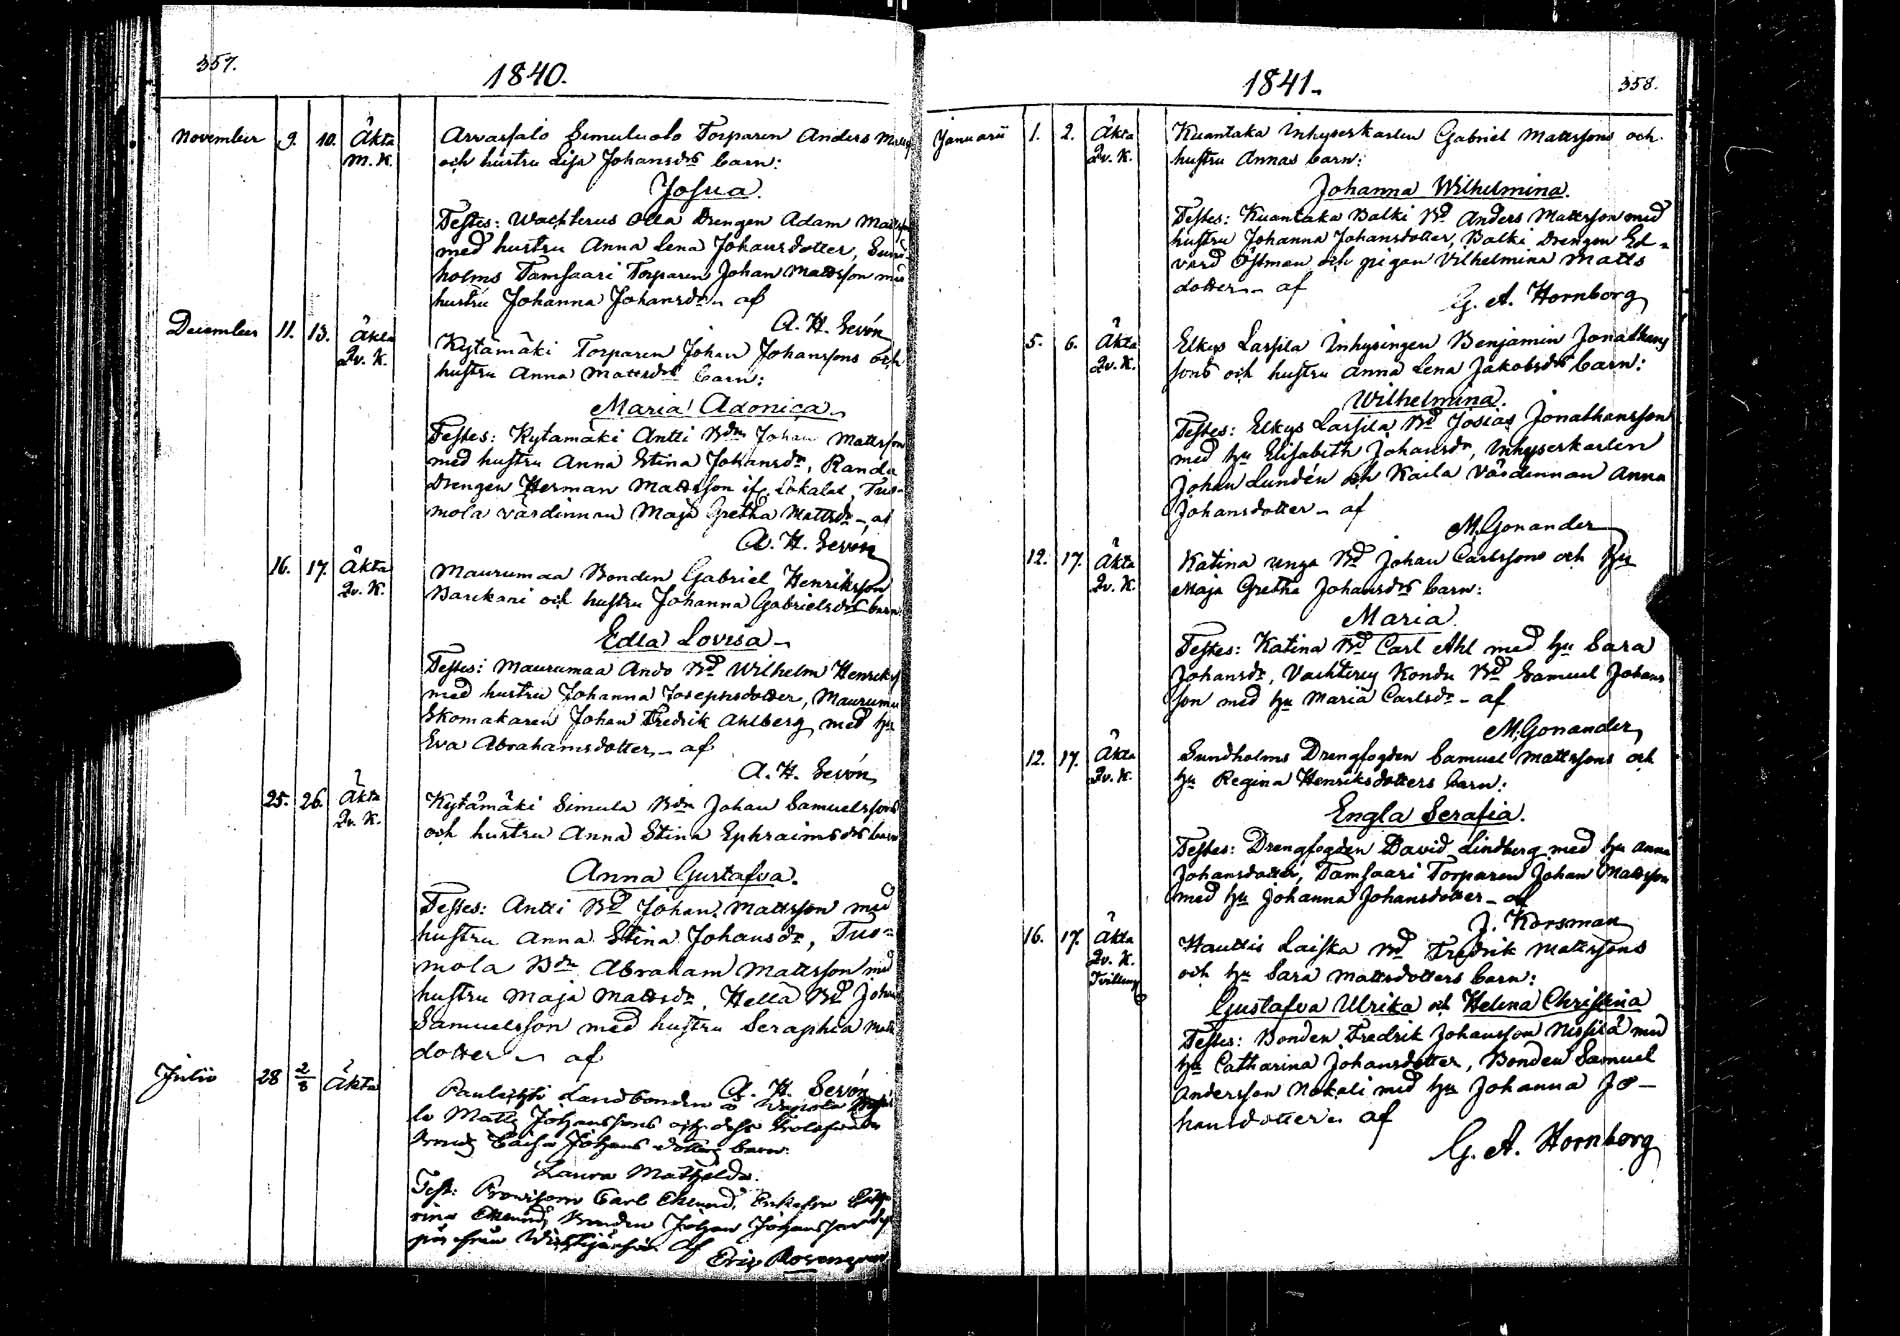 357.
1840.
November 9. 10. Äkta Arvassalo Simuluoto Torparen Anders
M. K. och hustru Lisa Johansdrs barn:
Josua.
Testes: Wachterus Olla Drengen Adam Mattsson
med hustru Anna Lena Johansdotter, Sund-
holms Tamsaari Torparen Johan Mattsson med
hustru Johanna Johansdr – af
A. H. Sevón
December 11. 13. Äkta Kytämäki Torparen Johan Johanssons och
Qv. K. hustru Anna Mattsdrs barn:
Maria Adonica
Testes: Kytämäki Antti Bdn Johan Mattsson
med hustru Anna Stina Johansdr, Randa
Drengen Herman Mattsson ifr. Lokalat, Tuo-
mola värdinnan Maja Gretha Mattsdr – af
A. H. Sevón
16. 17. Äkta Maurumaa Bonden Gabriel Henriksson
Qv. K. och hustru Johanna Gabrielsdrs barn
Edla Lovisa –
Testes: Maurumaa Ando Bd Wilhelm Henriks
med hustru Johanna Josephsdotter, Maurumaa
Skomakaren Johan Fredrik Ahlberg med hu
Eva Abrahamsdotter – af
A. H. Sevón
25. 26. Äkta Kytämäki Simula Bdn Johan Samuelssons
Qv. K. och hustru Anna Stina Ephraimsdrs barn
Anna Gustafva.
Testes: Antti Bd Johan Mattsson med
hustru Anna Stina Johansdr, Tuo-
mola Bdn Abraham Mattsson med
hustru Maja Mattsdr, Hella Bd Johan
Samuelsson med hustru Seraphia Matts
dotter – af
A. H. Sevón
Julii 28 2/8 Äkta Landbonden
Matts Johanssons och dess
Caisa Johans dotters barn
Laura Mathilda.
Test: Provisorn Carl Eklund, Enkefru
Eklund, Bonden Johan Johansson
af Eric Rosengren
358.
1841.
Januarii 1. 2. Äkta Kuantaka Inhyserkarlen Gabriel Mattssons och
Qv. K. hustru Annas barn:
Johanna Wilhelmina.
Testes: Kuantaka Balki Bd Anders Mattsson med
hustru Johanna Johansdotter, Balki Drengen Ed-
vard Östman och pigan Vilhelmina Matts
dotter – af
G. A. Hornborg
5. 6. Äkta Elkys Lassila Inhysingen Benjamin Jonathans
Qv. K. sons och hustru Anna Lena Jakobsdrs barn:
Wilhelmina.
Testes: Elkys Lassila Bd Josias Jonathansson
med hu Elisabeth Johansdr, Inhyserkarlen
Johan Lundén och Kaila Värdinnan Anna
Johansdotter – af
M. Gonander
12. 17. Äkta Katina unga Bd Johan Carlssons och hu
Qv. K. Maja Gretha Johansdrs barn:
Maria
Testes: Katina Bd Carl Ahl med hu Sara
Johansdr, Vachterus Kondu Bd Samuel Johans
son med hu Maria Carlsdr – af
M. Gonander
12. 17. Äkta Sundholms Drengfogden Samuel Mattssons och
Qv. K. hu Regina Henriksdotters barn:
Engla Serafia.
Testes: Drengfogden David Lindberg med hu Anna
Johansdotter, Tamsaari Torparen Johan Mattsson
med hu Johanna Johansdotter – af
J. Korsman
16. 17. Äkta Hauttis Laiska Bd Fredrik Mattssons
Qv. K. och hu Sara Mattsdotters barn:
Tvilling
Gustafva Ulrika och Helena Christina
Testes: Bonden Fredrik Johansson Nissilä med
hu Catharina Johansdotter, Bonden Samuel
Andersson Nokali med hu Johanna Jo-
hansdotter af
G. A. Hornborg